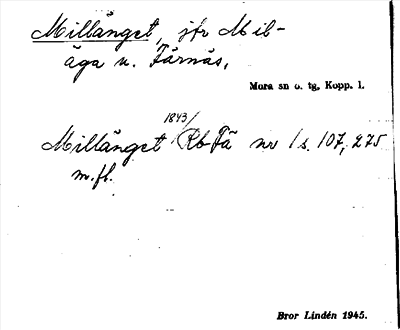 Millänget, jfr Mil-
äga u. Färnäs.
Mora sn o. tg, Kopp. l.
1843/
Millänget Rb Fä nr 1 s. 107, 275
m.fl.
Bror Lindén 1945.